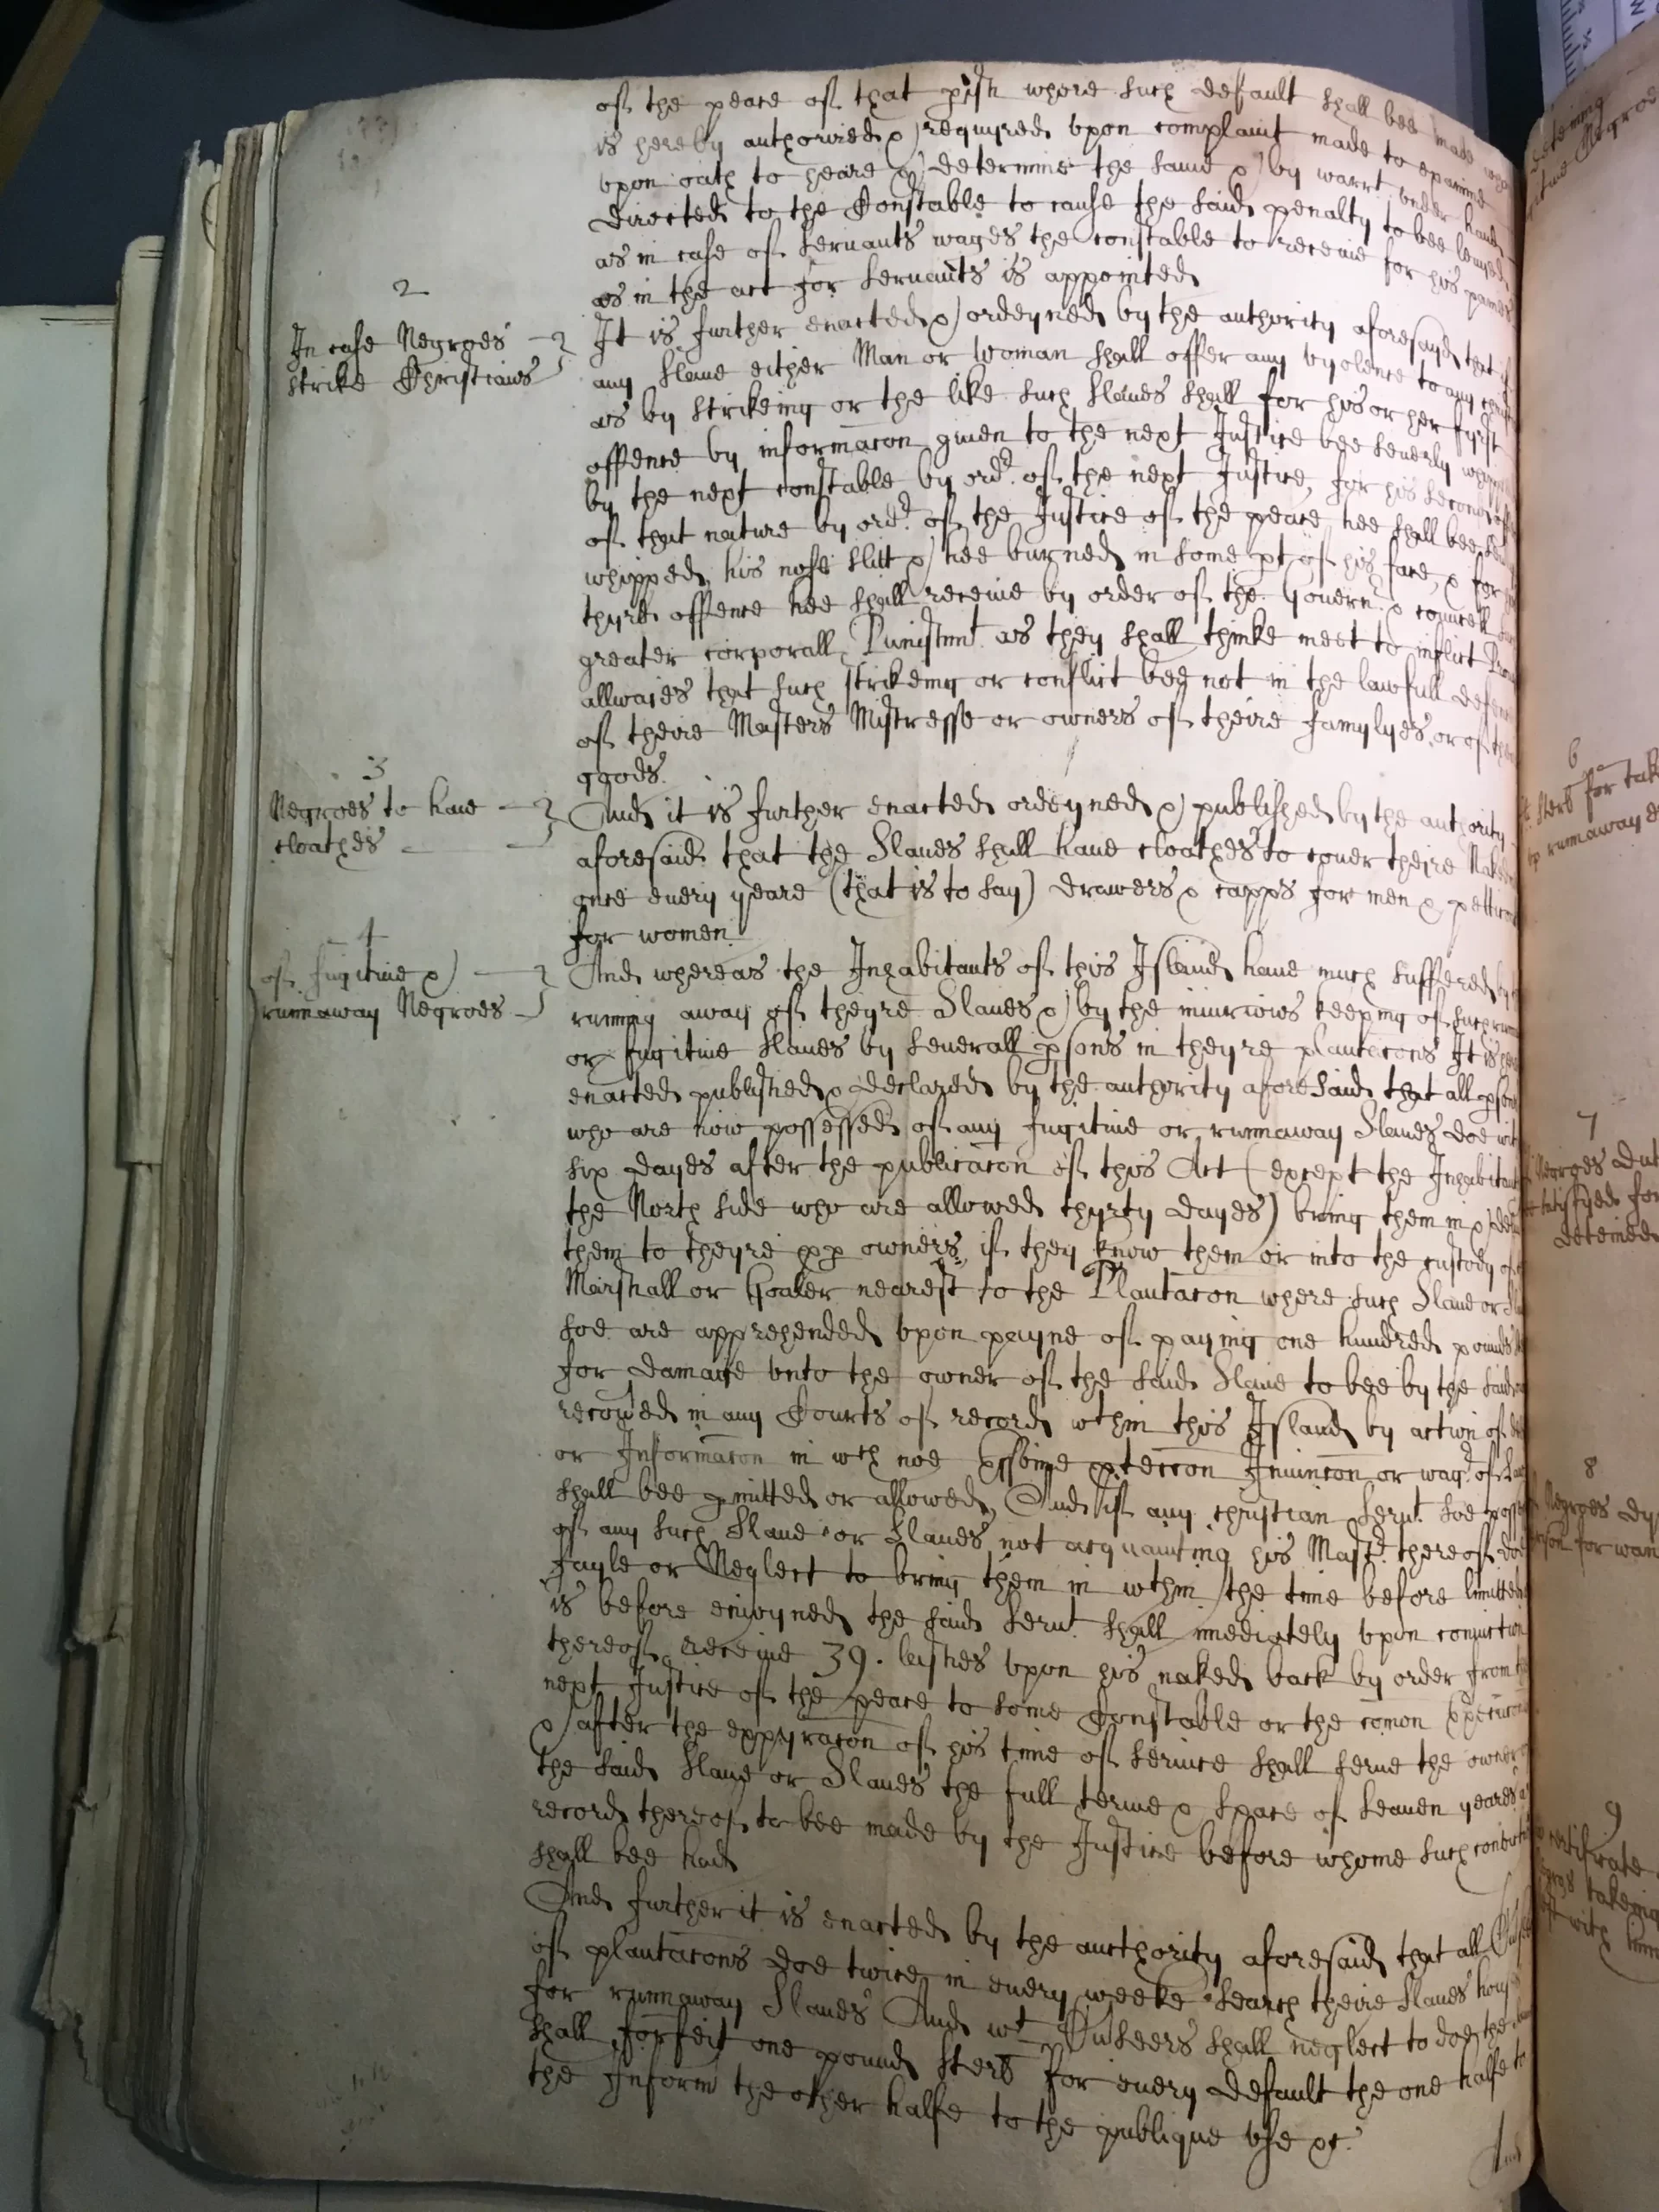 of the peace of that pish where such default shall bee made who
is hereby authorized & requyred vpon complaint made to examine
vpon oath to heare & determine the same & by warrt vnder hand
directed to the Constable to cause the said penalty to bee leuyed
as in case of seruants wages the constable to receiue for his paines
as in the act for seruants is appointed
2
In case Negroes
strike Christians
It is further enacted & ordeyned by the authority aforesayd that if
any slaue either Man or Woman shall offer any vyolence to any
as by strikeing or the like such slaues shall for his or her fyrst
offence by informacon giuen to the next Justice bee seuerly whipped
by the next constable by ordr. of the next Justice, for his second
of that nature by ordr. of the Justice of the peace hee shall bee
whipped, his nose slitt & bee burned in some pt of his face, & for
thyrd offence hee shall receiue by order of the Gouernr. & councell
greater corporall Punishmt. as they shall thinke meet to inflict
allwaies that such strikeing or conflict bee not in the lawfull
of theire Masters Mistresse or owners of theire famylyes, or of
goods.
3
Negroes to haue
cloathes
And it is further enacted ordeyned & published by the authority
aforesaid that the Slaues shall haue cloathes to couer theire
once euery yeare (that is to say) drawers & capps for men &
for women
4
of fugitiue &
runnaway Negroes
And whereas the Inhabitants of this Island haue much suffered
runing away of theyre Slaues & by the iniurious keeping of such
or fugitiue slaues by seuerall psons in theyre plantacons It is
enacted published & declared by the authority aforesaid that all psons
who are now possessed of any fugitiue or runnaway Slaues doe
six dayes after the publicacon of this Act (except the
the North side who are allowed thyrty dayes) bring them in &
them to theyre pp owners, if they know them or into the custody
Marshall or Goaler nearest to the Plantacon where such Slaue or
soe are apprehended vpon payne of paying one hundred pounds
for damage vnto the owner of the said Slaue to bee by the said
recoured in any Courts of record wthin this Island by action of
or Informacon in wch noe Essoine pteccon Iniuncon or wagr of
shall bee pmitted or allowed, And if any christian Serut. soe
of any such Slaue or Slaues not acquainting his Mastr. thereof doe
fayle or Neglect to bring them in wthin the time before limitted
is before enioyned the said Serut. shall imediately vpon conuiction
thereof receiue 39. lashes vpon his naked back by order from the
next Justice of the peace to some Constable or the comon
& after the expyracon of his time of seruice shall serue the owner
the said slaue or Slaues the full terme & space of seauen yeares
record thereof to bee made by the Justice before whome such
shall bee had
And further it is enacted by the aucthority aforesaid that all
of plantacons doe twice in euery weeke search theire slaues
for runnaway Slaues And wt Ouseers shall neglect to doe the
shall forfeit one pound sterl for euery default the one halfe to
the Informr the other halfe to the publique vse &c.
And
6
for
runaway
7
Negroes
detained
8
Negroes
for want
9
certificate
takeing
with him